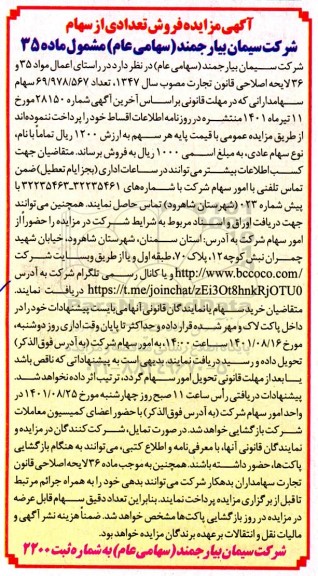 آگهی مزایده فروش تعدادی از سهام
شرکت سیمان بیارجمند (سهامی عام) مشمول ماده ۳۵
شرکت سیمان بیارجمند (سهامی عام) در نظر دارد در راستای اعمال مواد ۳۵ و
۳۶ لایحه اصلاحی قانون تجارت مصوب سال ۱۳۴۷، تعداد ۶۹/۹۷۸/۵۶۷ سهام
سهامدارانی که در مهلت قانونی براساس آخرین آگهی شماره ۲۸۱۵۰ مورخ
۱۱ تیرماه ۱۴۰۱ منتشره در روزنامه اطلاعات اقساط خود را پرداخت ننموده‌اند
از طریق مزایده عمومی با قیمت پایه هر سهم به ارزش ۱۲۰۰ ریال تماماً بانام،
نوع سهام عادی، به مبلغ اسمی ۱۰۰۰ ریال به فروش برساند. متقاضیان جهت
کسب اطلاعات بیشتر می‌توانند در ساعات اداری (بجز ایام تعطیل) ضمن
تماس تلفنی با امور سهام شرکت با شماره‌های ۳۲۲۳۵۴۶۱-۳۲۲۳۵۴۶۳ با
پیش شماره ۰۲۳ (شهرستان شاهرود) تماس حاصل نمایند. همچنین می‌توانند
جهت دریافت اوراق و اسناد مربوط به شرایط شرکت در مزایده را حضوراً از
امور سهام شرکت به آدرس: استان سمنان، شهرستان شاهرود، خیابان شهید
چمران نبش کوچه ۱۲، پلاک ۷۰، طبقه اول و یا از طریق وبسایت شرکت
http://www.bccoco.com/ و یا کانال رسمی تلگرام شرکت به آدرس
https://t.me/joinchat/zEi3Ot8hnkRjOTU0 دریافت نمایند.
متقاضیان خرید سهام یا نمایندگان قانونی آنها می‌بایست پیشنهادات خود را در
داخل پاکت لاک و مهر شده قرار داده و حداکثر تا پایان وقت اداری روز دوشنبه،
مورخ ۱۴۰۱/۰۸/۱۶ ساعت ۱۴:۰۰، به امور سهام شرکت (به آدرس فوق الذکر)
تحویل داده و رسید دریافت نمایند. بدیهی است به پیشنهاداتی که ناقص باشد
یا بعد از مهلت قانونی تحویل امور سهام گردد، ترتیب اثر داده نخواهد شد.
پیشنهادات دریافتی رأس ساعت ۱۱ صبح روز چهارشنبه مورخ ۱۴۰۱/۰۸/۲۵ در
واحد امور سهام شرکت (به آدرس فوق الذکر) با حضور اعضای کمیسیون معاملات
شرکت بازگشایی خواهد شد. در صورت تمایل، شرکت‌کنندگان در مزایده و
نمایندگان قانونی آنها، با معرفی‌نامه و اطلاع کتبی، می‌توانند به هنگام بازگشایی
پاکت‌ها، حضور داشته باشند. همچنین به موجب ماده ۳۶ لایحه اصلاحی قانون
تجارت سهامداران بدهکار شرکت می‌توانند بدهی خود را به همراه جرائم مرتبط
تا قبل از برگزاری مزایده پرداخت نمایند. بنابراین تعداد دقیق سهام قابل عرضه
در مزایده در روز بازگشایی پاکت‌ها مشخص خواهد شد. ضمناً هزینه نشر آگهی و
مالیات نقل و انتقالات برعهده برندگان مزایده خواهد بود.
شرکت سیمان بیارجمند (سهامی عام) به شماره ثبت ۲۲۰۰